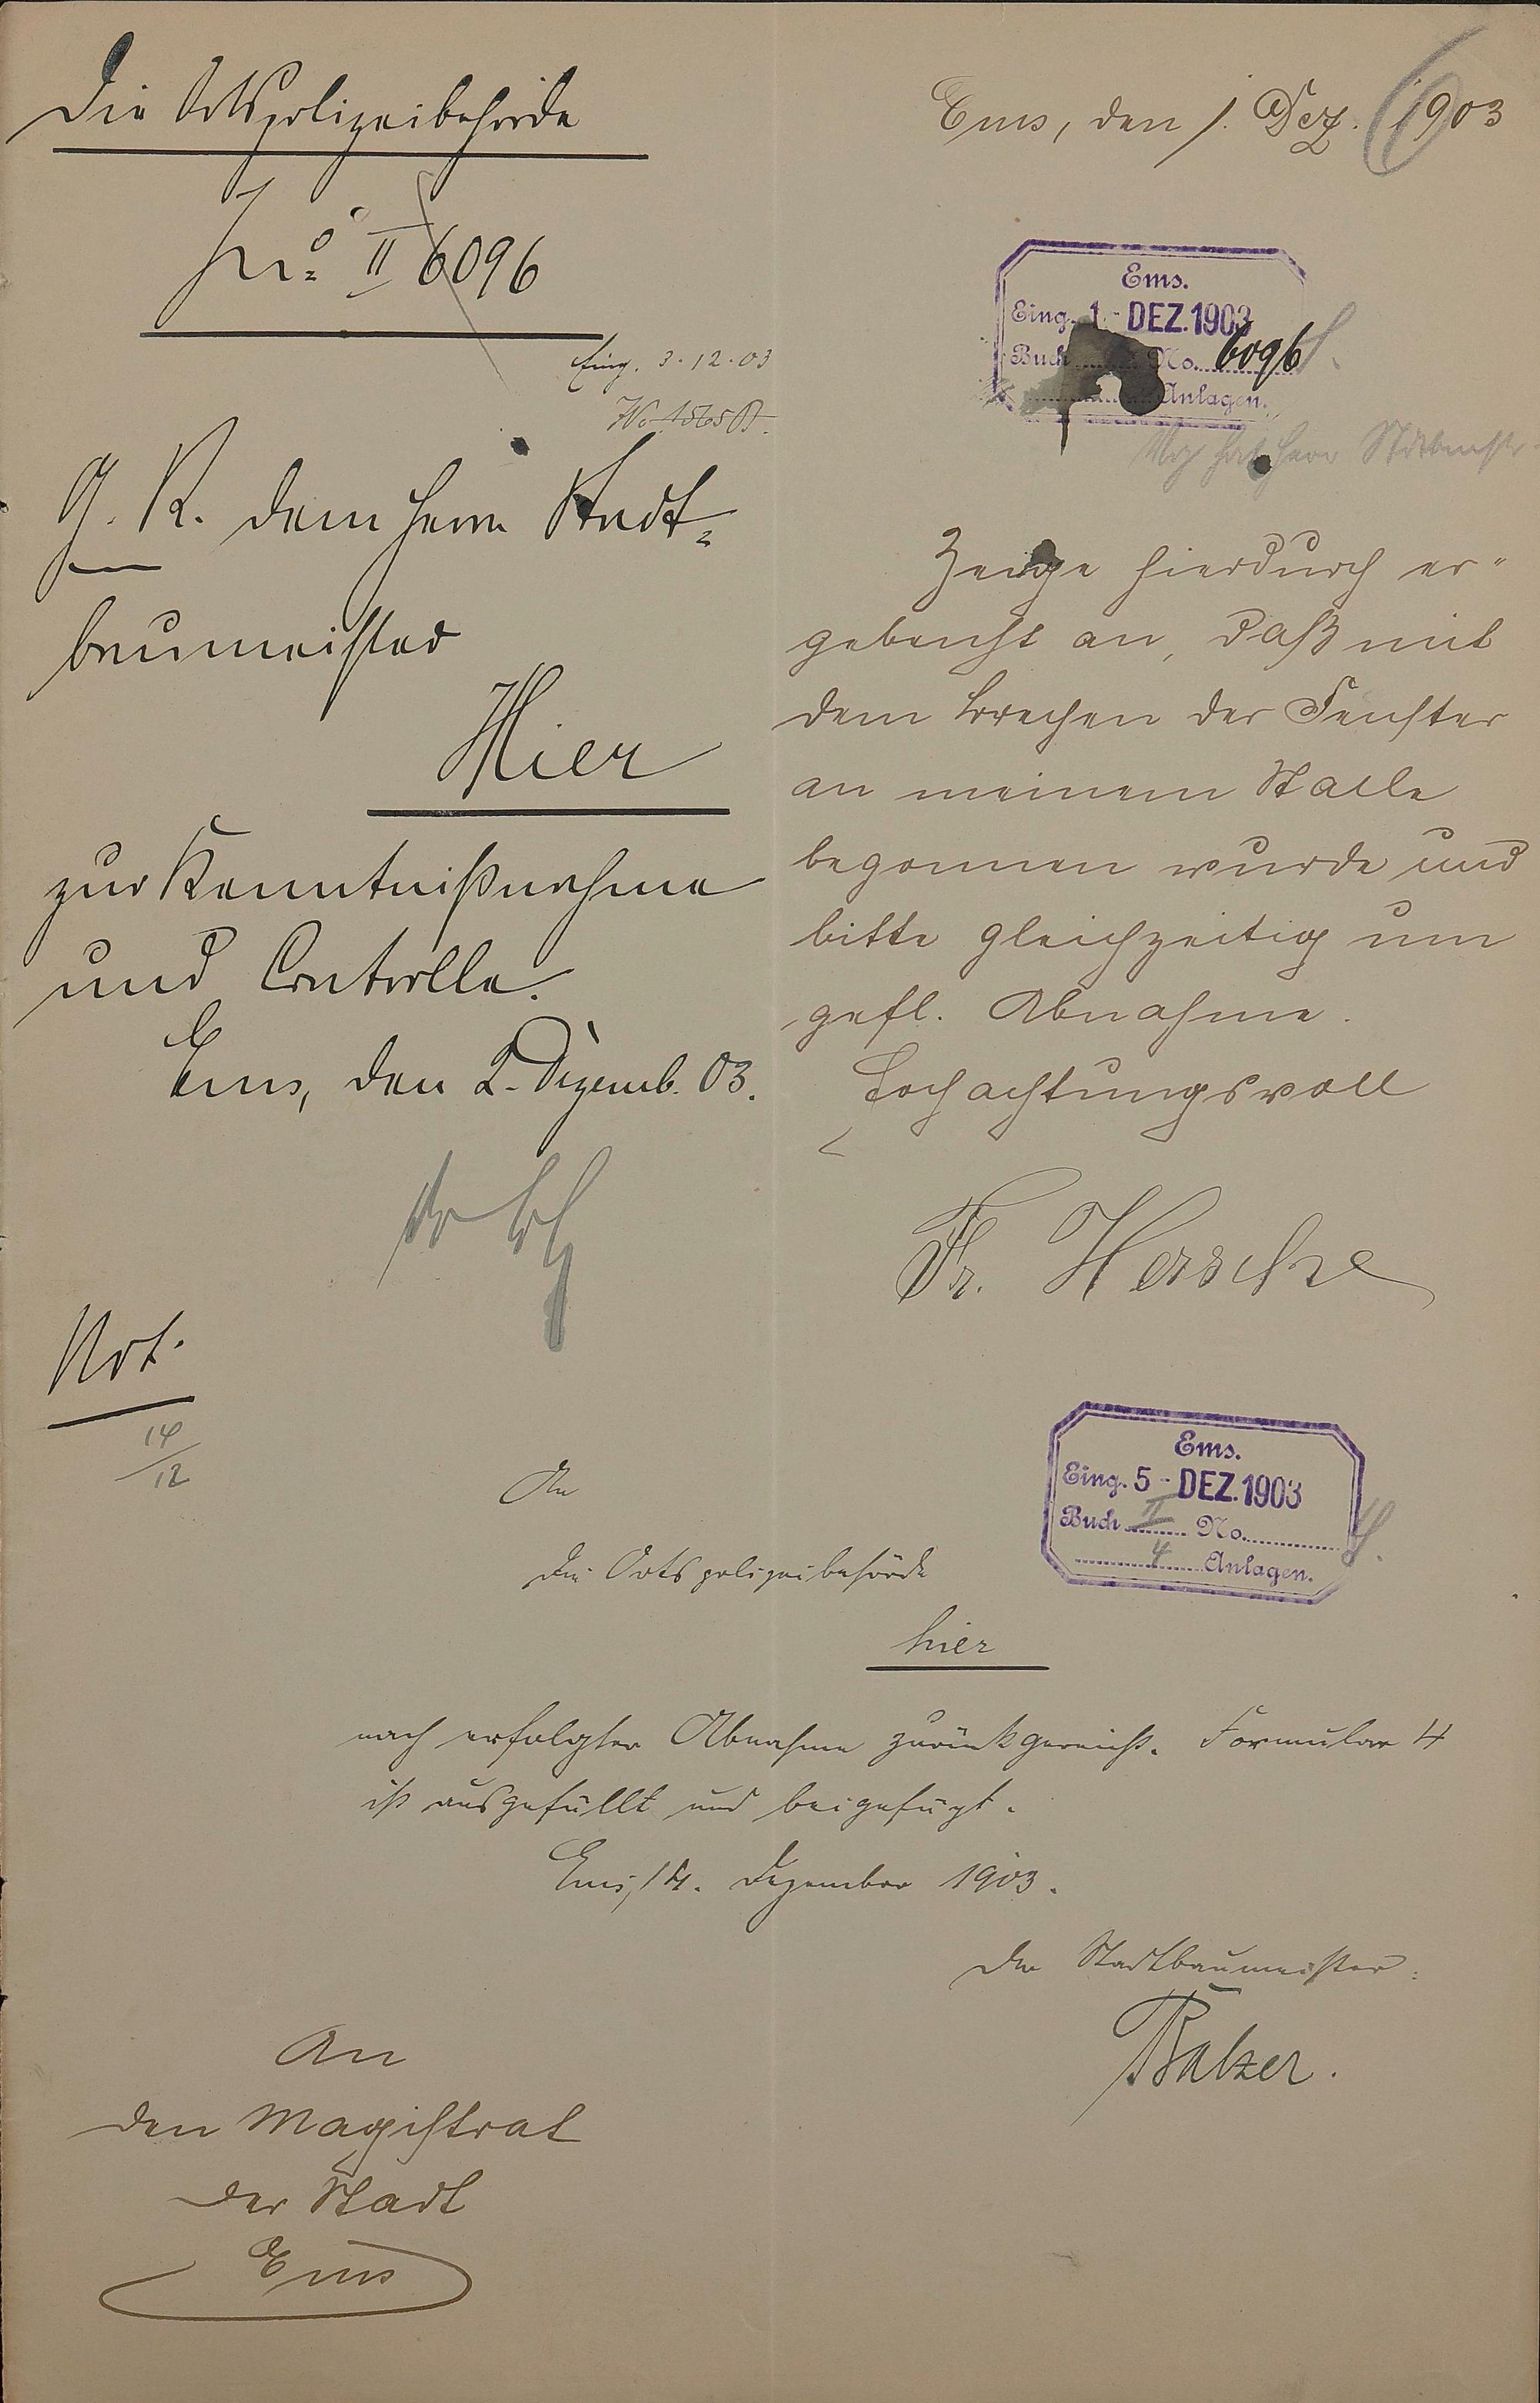 Die Ortspolizeibehörde
Jr. No. II 6096
Eing. 3.12.03
No 1565 B.
G. R. dem Herrn Stadt=
baumeister
Hier
zur Kenntnißnahme
und Controlle.
Ems, den 2. Dezemb. 03.
Not.
14/12
Ems, den 1. Dez. 1903
Ems.
Eing. 1 - DEZ. 1903
Buch No. 6096
Anlagen.
Zeige hierdurch er-
gebenst an, daß mit
dem brechen der Fenster
an meinem Stalle
begonnen wurde und
bitte gleichzeitig um
gefl. Abnahme.
Hochachtungsvoll
Fr. Hersche
Ems.
Eing. 5 - DEZ. 1903
Buch II No.
4 Anlagen.
An
die Ortspolizeibehörde
hier
nach erfolgter Abnahme zurückgereicht. Formular 4
ist ausgefüllt und beigefügt.
Ems, 14. Dezember 1903.
Der Stadtbaumeister:
Balzer.
An
den Magistrat
der Stadt
Ems